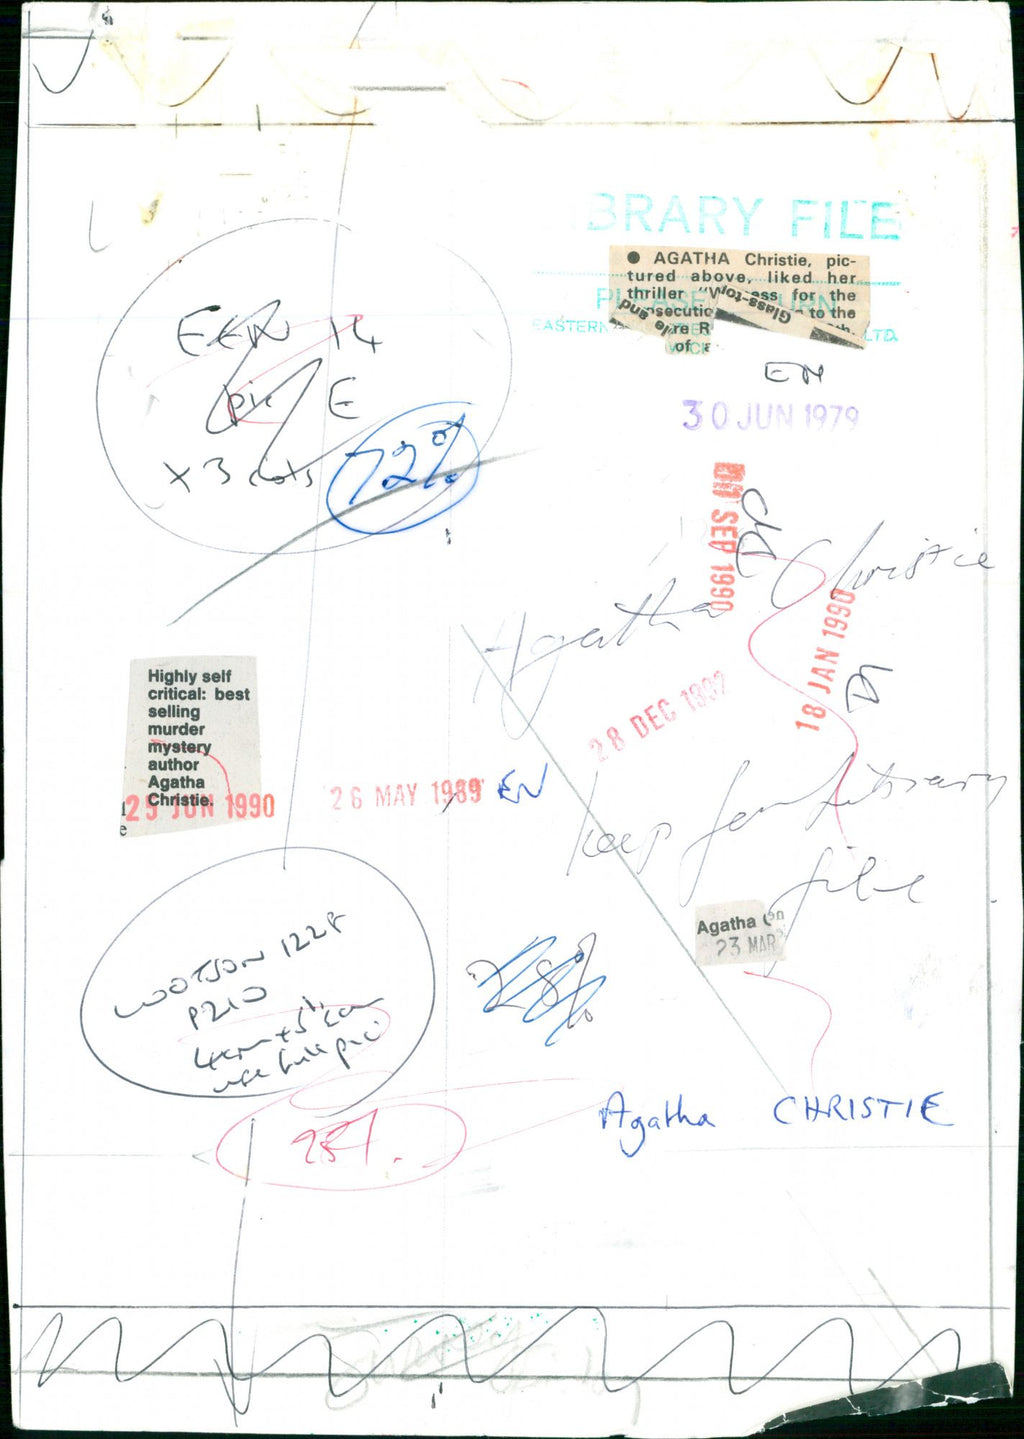 BRARY FILE
● AGATHA Christie, pic-
tured above, liked her
thriller "W ess for the
osecutio to the
Glass-top-
and
re R
of a
EASTERN LTD.
EN
30 JUN 1979
EEN 14
pic E
x 3 cols
72%
SEP 1990
Agatha Christie
18 JAN 1990
28 DEC 1992
Highly self
critical: best
selling
murder
mystery
author
Agatha
Christie.
29 JUN 1990
26 MAY 1989
EN
Keep for Library
file
Agatha
23 MAR
WOTSON 1228
P210
use full pic
Agatha CHRISTIE